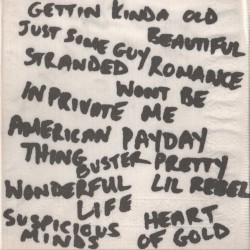 GETTIN KINDA OLD
JUST SOME GUY BEAUTIFUL
STRANDED ROMANCE
WONT BE
IN PRIVATE ME
AMERICAN PAYDAY
THING BUSTER PRETTY
WONDERFUL LIL REBEL
LIFE
SUSPICIOUS HEART
MINDS OF GOLD